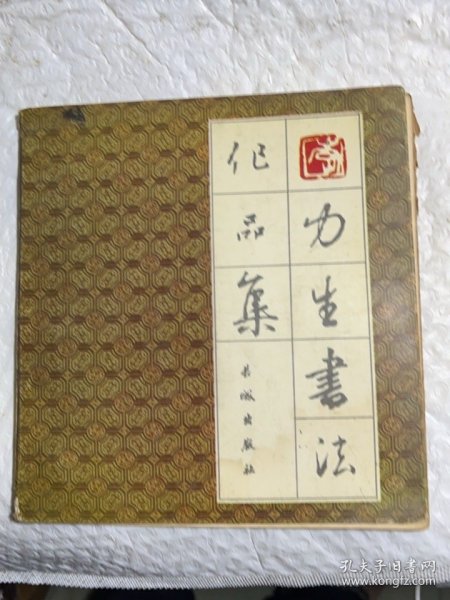 力生书法
作品集
长城出版社
孔夫子旧书网
www.kongfz.com